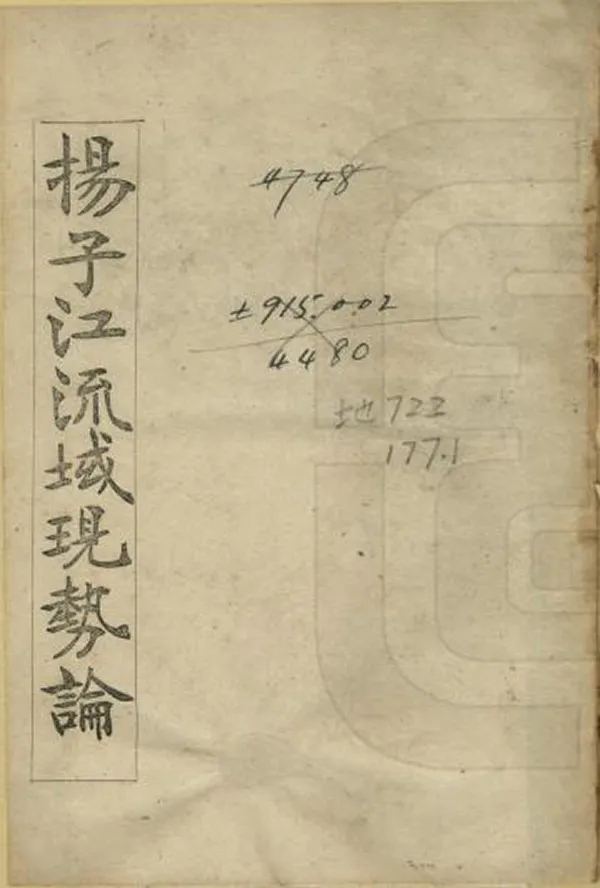 揚子江流域現勢論
4748
±915.0.02
4480
地722
177.1